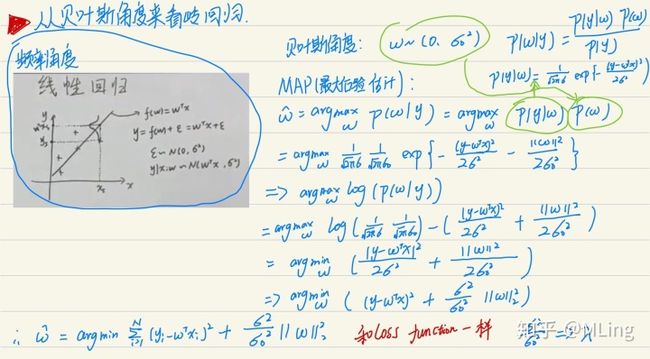 从贝叶斯角度来看岭回归.
频率角度
线性回归
y
f(w)=wᵀx
y=f(w)+ε=wᵀx+ε
ε~N(0,σ²)
y|x;w~N(wᵀx,σ²)
x
贝叶斯角度: w~(0, σ₀²) p(w|y) = p(y|w) p(w) / p(y)
p(y|w) = 1/√2πσ exp{-(y-wᵀx)²/2σ²}
MAP(最大后验估计):
ŵ = argmax_w p(w|y) = argmax_w p(y|w) p(w)
= argmax_w 1/√2πσ 1/√2πσ₀ exp{-(y-wᵀx)²/2σ² - ||w||²/2σ₀²}
=> argmax_w log(p(w|y))
= argmax_w log(1/√2πσ 1/√2πσ₀) - ((y-wᵀx)²/2σ² + ||w||²/2σ₀²)
= argmin_w ((y-wᵀx)²/2σ² + ||w||²/2σ₀²)
=> argmin_w ((y-wᵀx)² + σ²/σ₀² ||w||₂²)
∴ ŵ = argmin Σᵢ₌₁ᴺ (yᵢ-wᵀxᵢ)² + σ²/σ₀² ||w||²₂ 和loss function一样 σ²/σ₀² = λ
知乎 @NLing